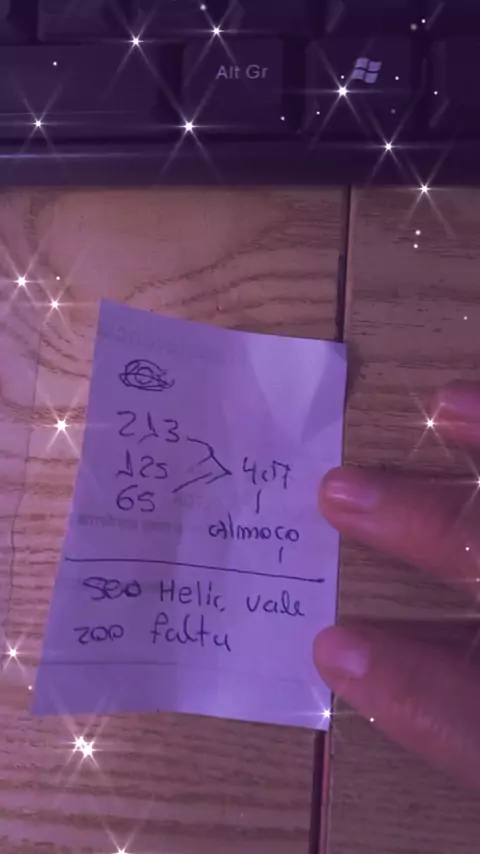 Alt Gr
213
125
65
417
almoço
seo Helio vale
200 falta